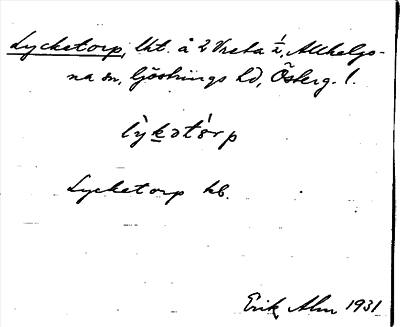 Lycketorp, lht. å 2 Vreta ½, Allhelgo-
na sn, Göstrings hd, Österg. l.
lỳkətó̀rp
Lycketorp kb.
Erik Alm 1931